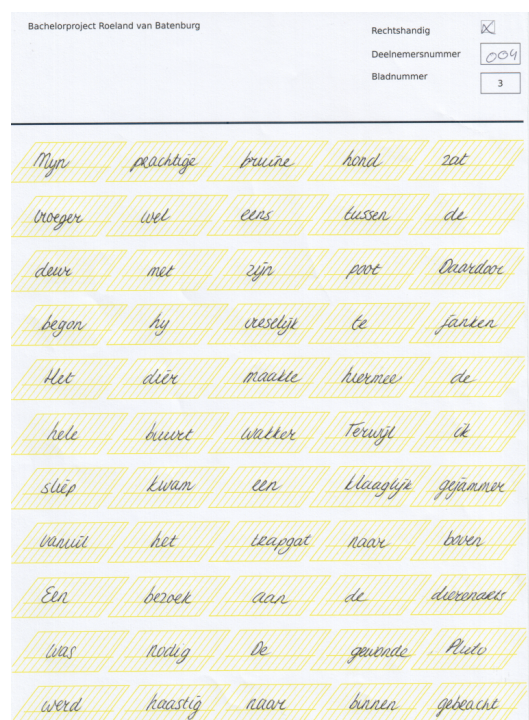 Bachelorproject Roeland van Batenburg
Rechtshandig
Deelnemersnummer 004
Bladnummer 3
Mijn prachtige bruine hond zat
vroeger wel eens tussen de
deur met zijn poot Daardoor
begon hij vreselijk te janken
Het dier maakte hiermee de
hele buurt wakker Terwijl ik
sliep kwam een klaaglijk gejammer
vanuit het trapgat naar boven
Een bezoek aan de dierenarts
was nodig De gewonde Pluto
werd haastig naar binnen gebracht